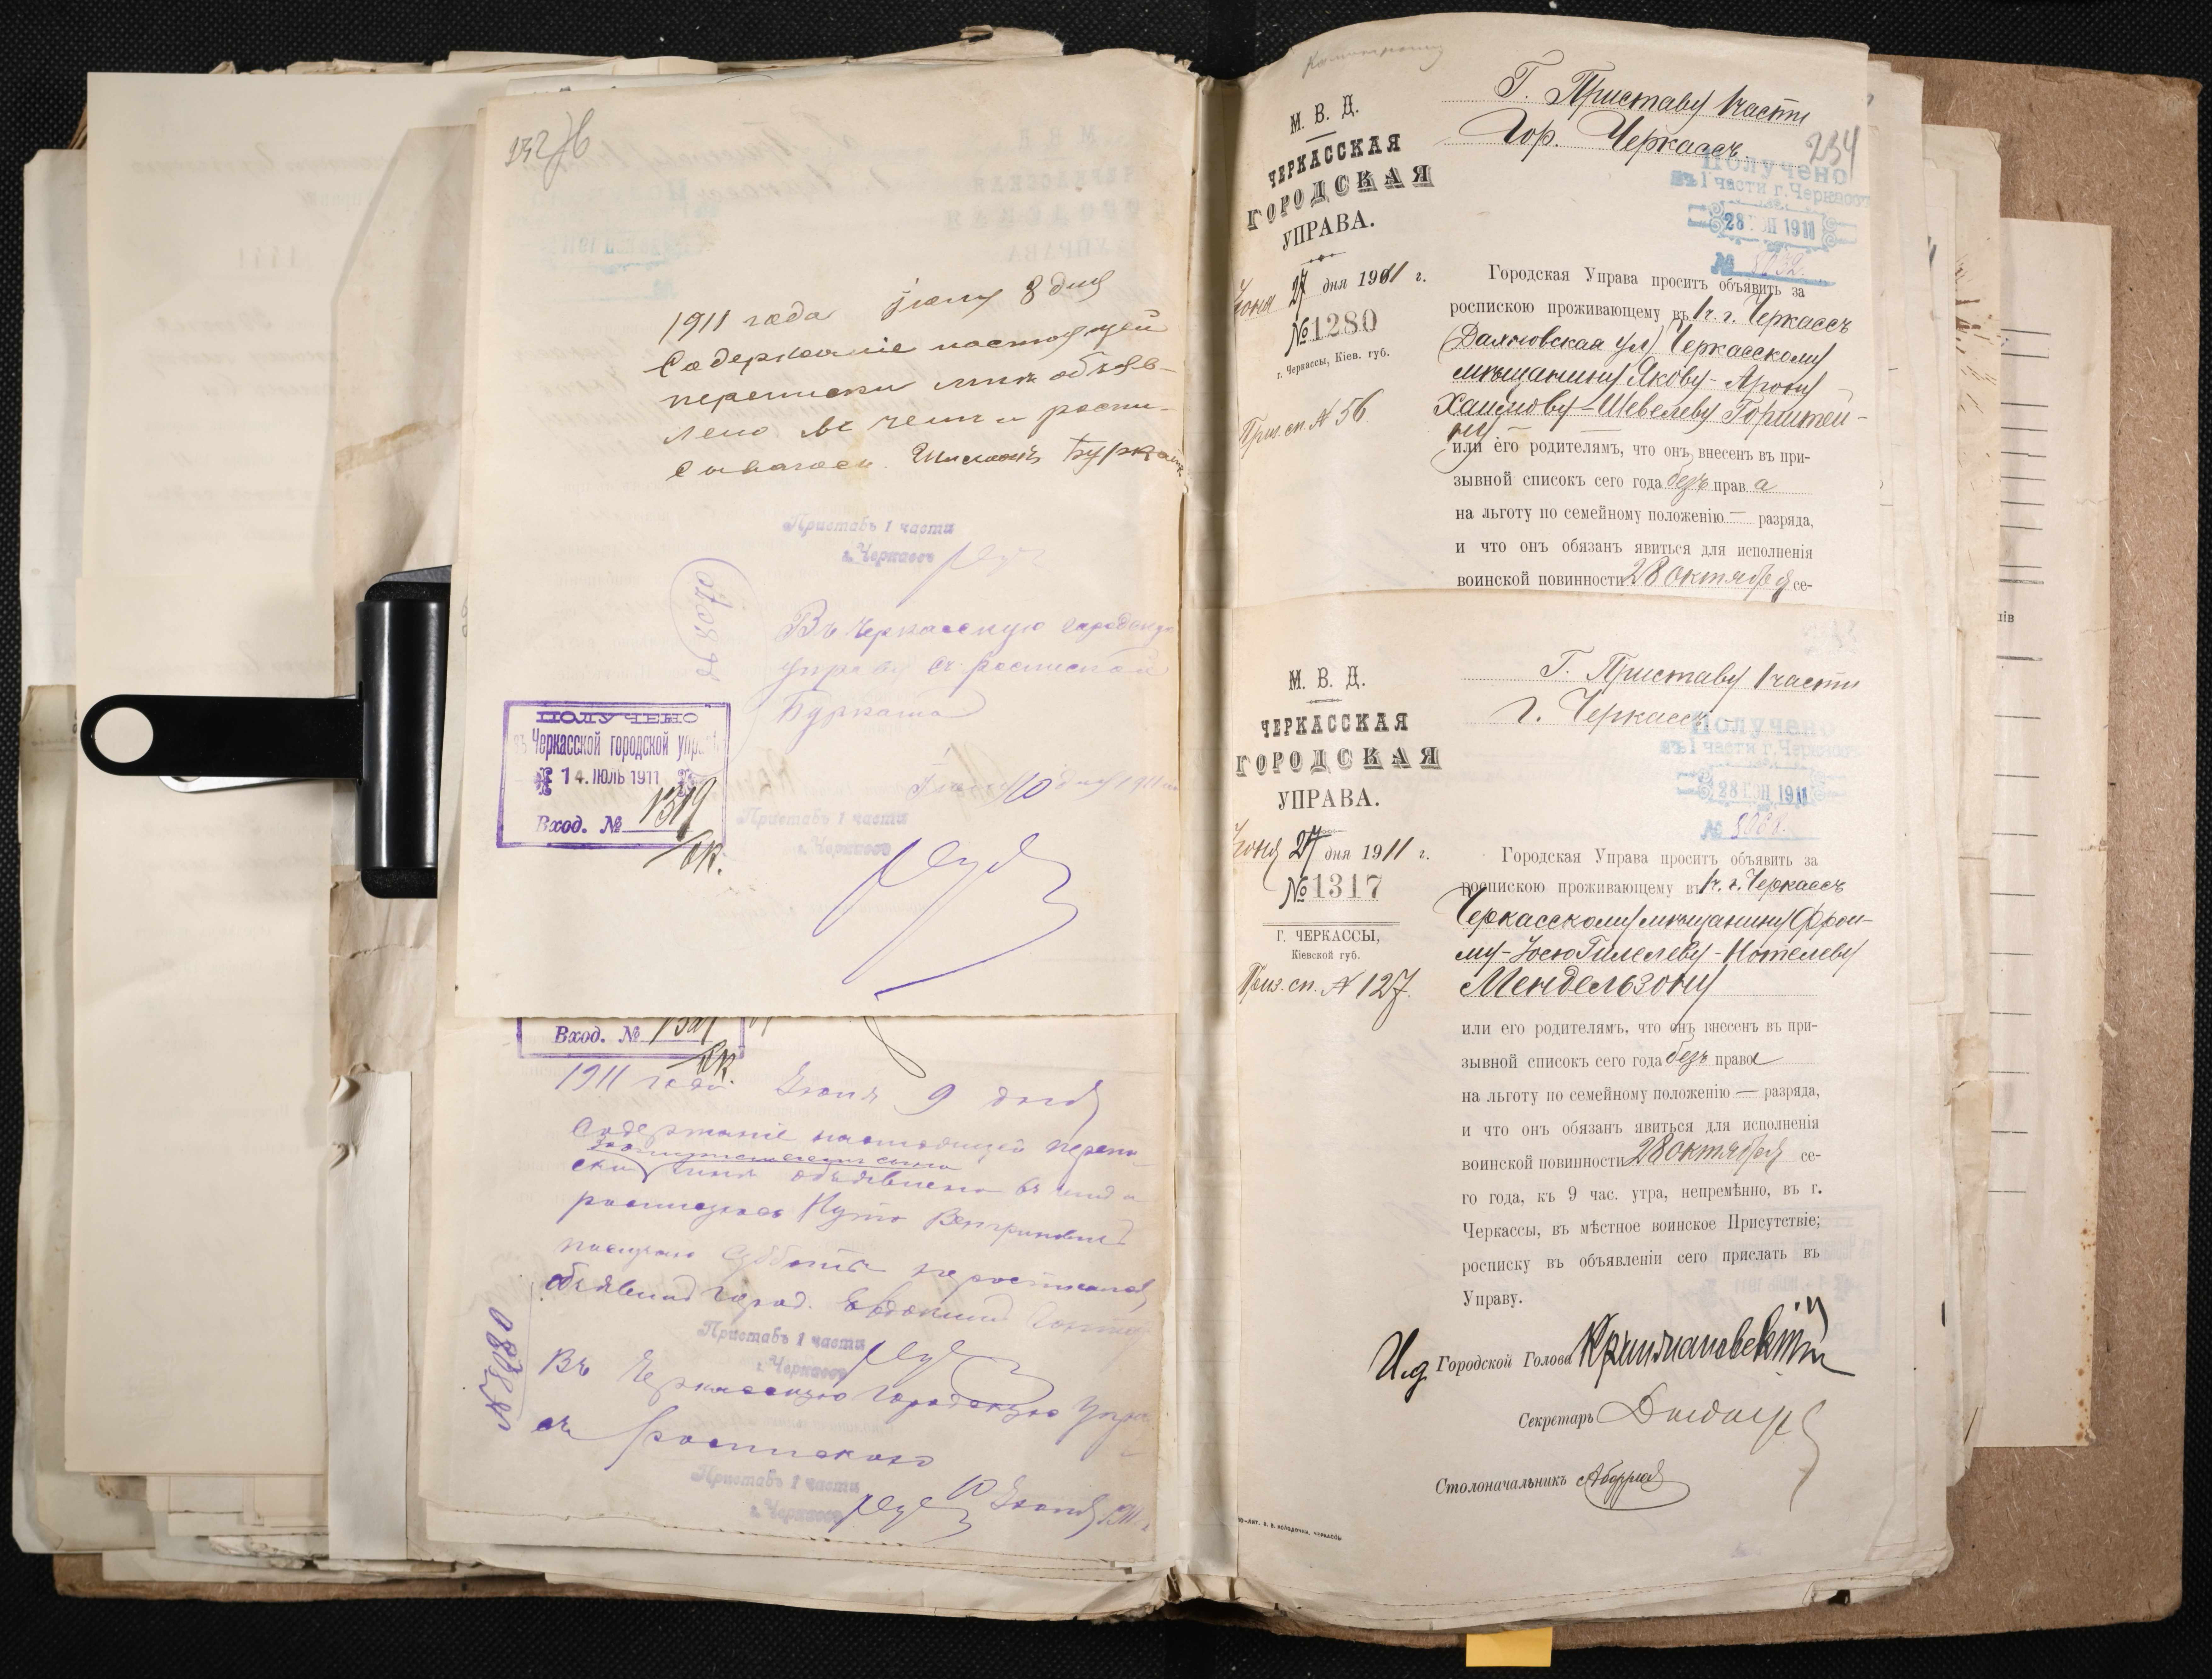 1911 года іюля 8 дня
Содержаніе настоящей
переписки мнѣ объяв-
лено въ чемъ и роспи-
сываюсь.
Приставъ 1 части
г. Черкассъ
Въ Черкасскую городскую
управу съ роспиской
Бурката
№ 8070
Іюля 10 дня 1911 г.
Приставъ 1 части
г. Черкассъ
ПОЛУЧЕНО
въ Черкасской городской упр
14. ІЮЛЬ 1911
Вход. № 1319
Вход. №
1911 года Іюля 9 дня
Содержаніе настоящей перепи-
ски мнѣ объявлено въ чемъ и
росписуюсь
по случаю субботы не росписался
объявилъ город.
Приставъ 1 части
г. Черкассъ
Въ Черкасскую Городскую Упра
съ роспискою
№ 8080
Приставъ 1 части
г. Черкассъ
10 Іюля 1911 г.
Г. Приставу 1 части
Гор. Черкассъ
234
М. В. Д.
ЧЕРКАССКАЯ
ГОРОДСКАЯ
УПРАВА.
Получено
въ 1 части г. Черкассъ
28 1911
№
Іюня 27 дня 1911 г.
№ 1280
г. Черкассы, Кіев. губ.
Приз. сп. № 56
Городская Управа проситъ объявить за
роспискою проживающему въ 1 ч. г. Черкассъ
Черкасскому
мѣщанину Якову-Арону
Хаимову-Шевелеву Горштей-
ну
или его родителямъ, что онъ внесенъ въ при-
зывной списокъ сего года безъ права
на льготу по семейному положенію — разряда,
и что онъ обязанъ явиться для исполненія
воинской повинности 28 октября се-
Г. Приставу 1 части
г. Черкассъ
М. В. Д.
ЧЕРКАССКАЯ
ГОРОДСКАЯ
УПРАВА.
Получено
въ 1 части г. Черкассъ
28 ІЮН 1911
№
Іюня 27 дня 1911 г.
№ 1317
Г. ЧЕРКАССЫ,
Кіевской губ.
Приз. сп. № 127.
Городская Управа проситъ объявить за
роспискою проживающему въ 1 ч. г. Черкассъ
Черкасскому мѣщанину Фрои-
му-Іосю Гилелеву-Нотелеву
Мендельзону
или его родителямъ, что онъ внесенъ въ при-
зывной списокъ сего года безъ права
на льготу по семейному положенію — разряда,
и что онъ обязанъ явиться для исполненія
воинской повинности 28 октября се-
го года, къ 9 час. утра, непремѣнно, въ г.
Черкассы, въ мѣстное воинское Присутствіе;
росписку въ объявленіи сего прислать въ
Управу.
И.д. Городской Голова
Секретарь
Столоначальникъ